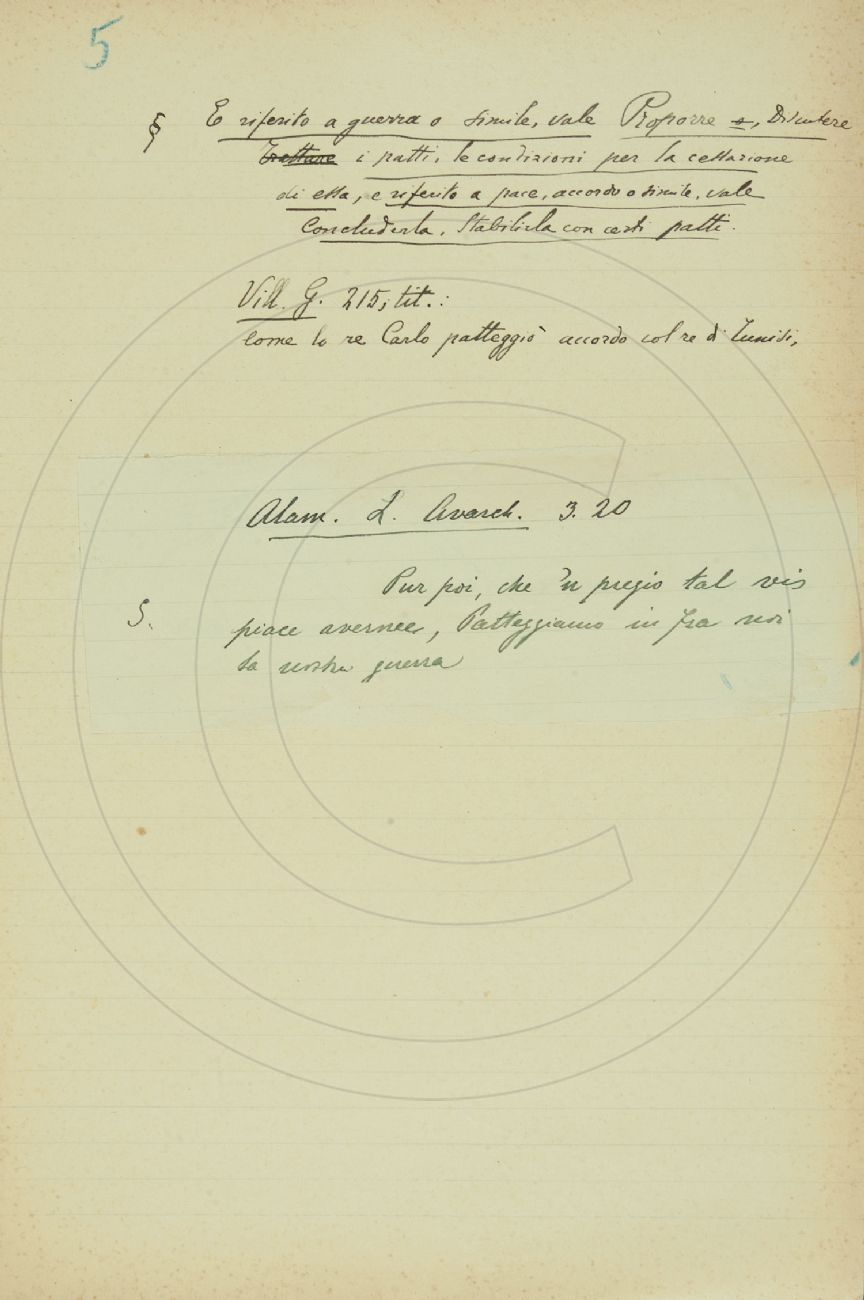 5
§ E riferito a guerra o simile, vale Proporre o, Discutere
Trattare i patti, le condizioni per la cessazione
di essa, e riferito a pace, accordo o simile, vale
Concluderla, Stabilirla con certi patti.
Vill. G. 215, tit.:
Come lo re Carlo patteggiò accordo col re di Tunisi,
Alam. L. Avarch. 3. 20
Pur poi, che 'n pregio tal vi
S. piace avernee, Patteggiamo in fra noi
la nostra guerra